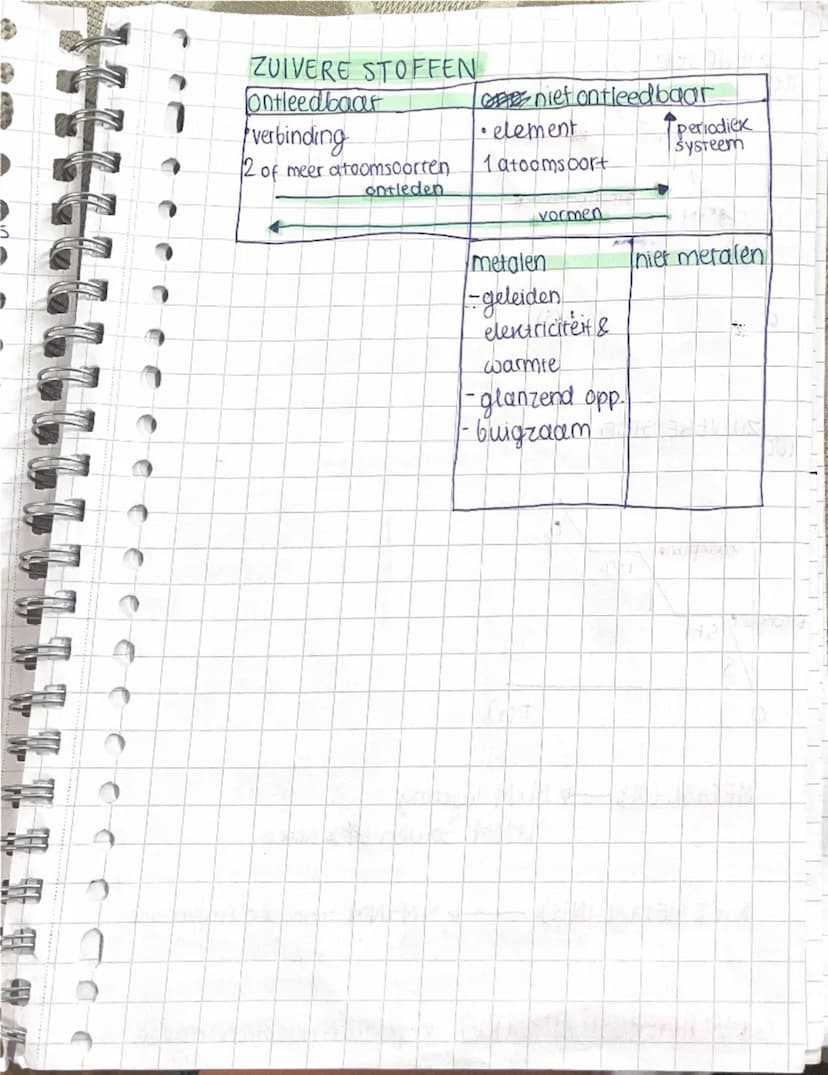 ZUIVERE STOFFEN
ontleedbaar
niet ontleedbaar
verbinding
2 of meer atoomsoorten
• element
1 atoomsoort
periodiek
systeem
ontleden
vormen
metalen
niet metalen
- geleiden
elektriciteit &
warmte
- glanzend opp.
- buigzaam